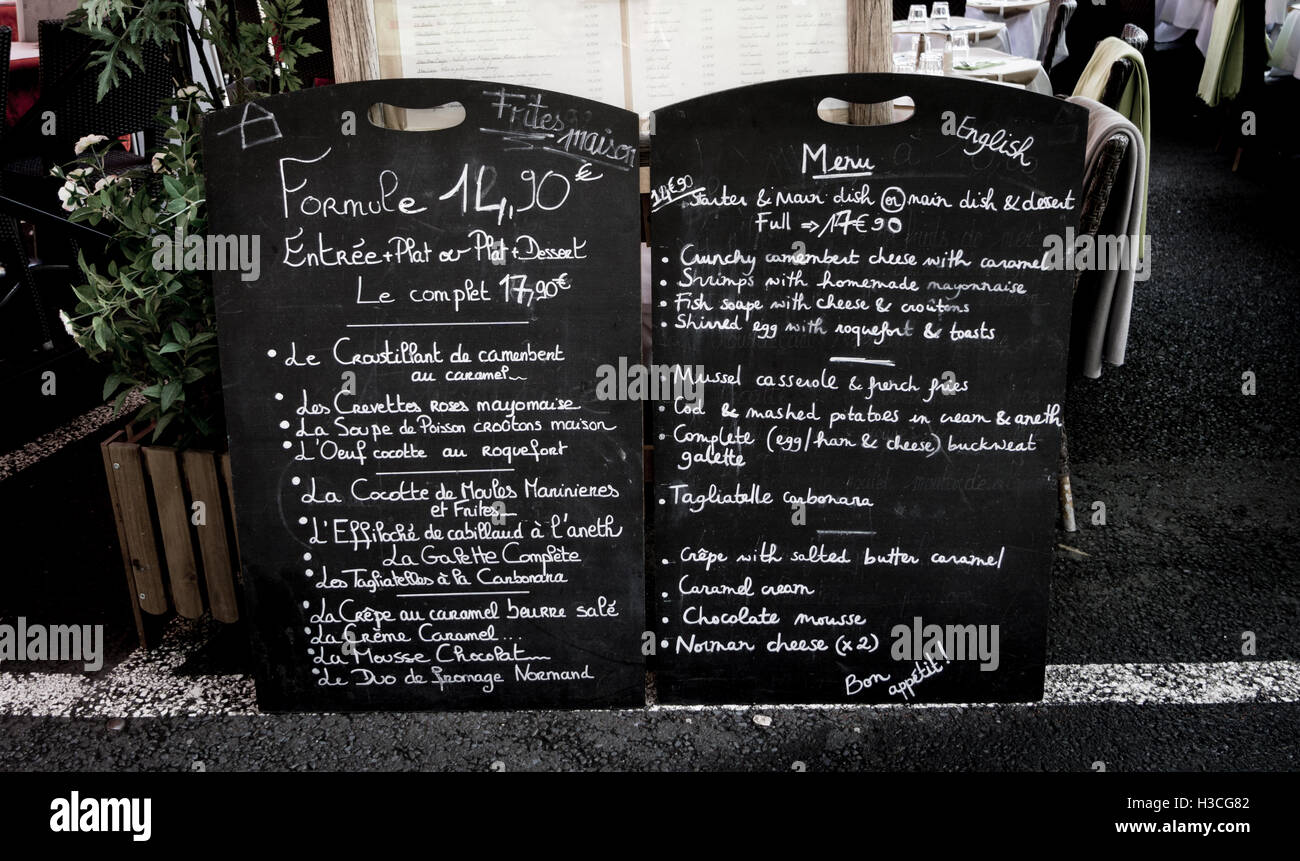 Frites
maison
Formule 14,90€
Entrée + Plat ou Plat + Dessert
Le complet 17,90€
• Le Croustillant de camenbert
au caramel
• Les Crevettes Roses mayomaise
• La Soupe de Poisson croûtons maison
• L'Oeuf cocotte au roquefort
• La Cocotte de Moules Marinieres
et Frites
• L'Effiloché de cabillaud à l'aneth
• La Galette Complète
• Les Tagliatelles à la Carbonara
• La Crêpe au caramel beurre salé
• La Crème Caramel....
• La Mousse Chocolat
• Le Duo de fromage Normand
English
Menu
14€90 Starter & Main dish or main dish & dessert
Full ⇒ 17€90
• Crunchy camembert cheese with caramel
• Shrimps with homemade mayonnaise
• Fish soape with cheese & croûtons
• Shirred egg with roquefort & toasts
• Mussel casserole & french fries
• Cod & mashed potatoes in cream & aneth
• Complete (egg/ham & cheese) buckweat
galette
• Tagliatelle carbonara
• Crêpe with salted butter caramel
• Caramel cream
• Chocolate mousse
• Norman cheese (x2)
Bon
appétit!
alamy
a
alamy
Image ID: H3CG82
www.alamy.com